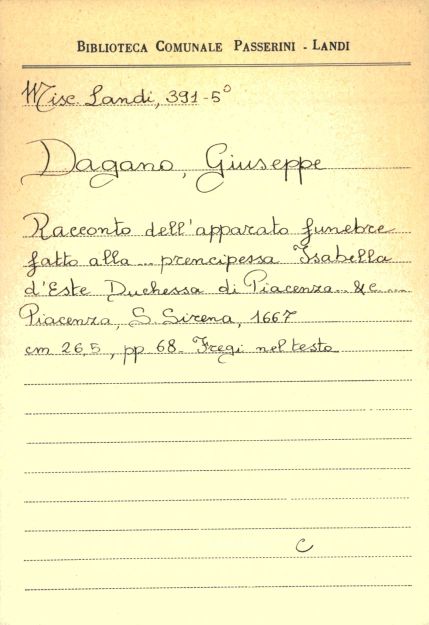 BIBLIOTECA COMUNALE PASSERINI - LANDI
Misc. Landi, 391-5°
Dagano, Giuseppe
Racconto dell'apparato funebre
fatto alla ... prencipessa Isabella
d'Este Duchessa di Piacenza .. &c ....
Piacenza, S. Sirena, 1667
cm 26,5, pp 68. Fregi nel testo
C